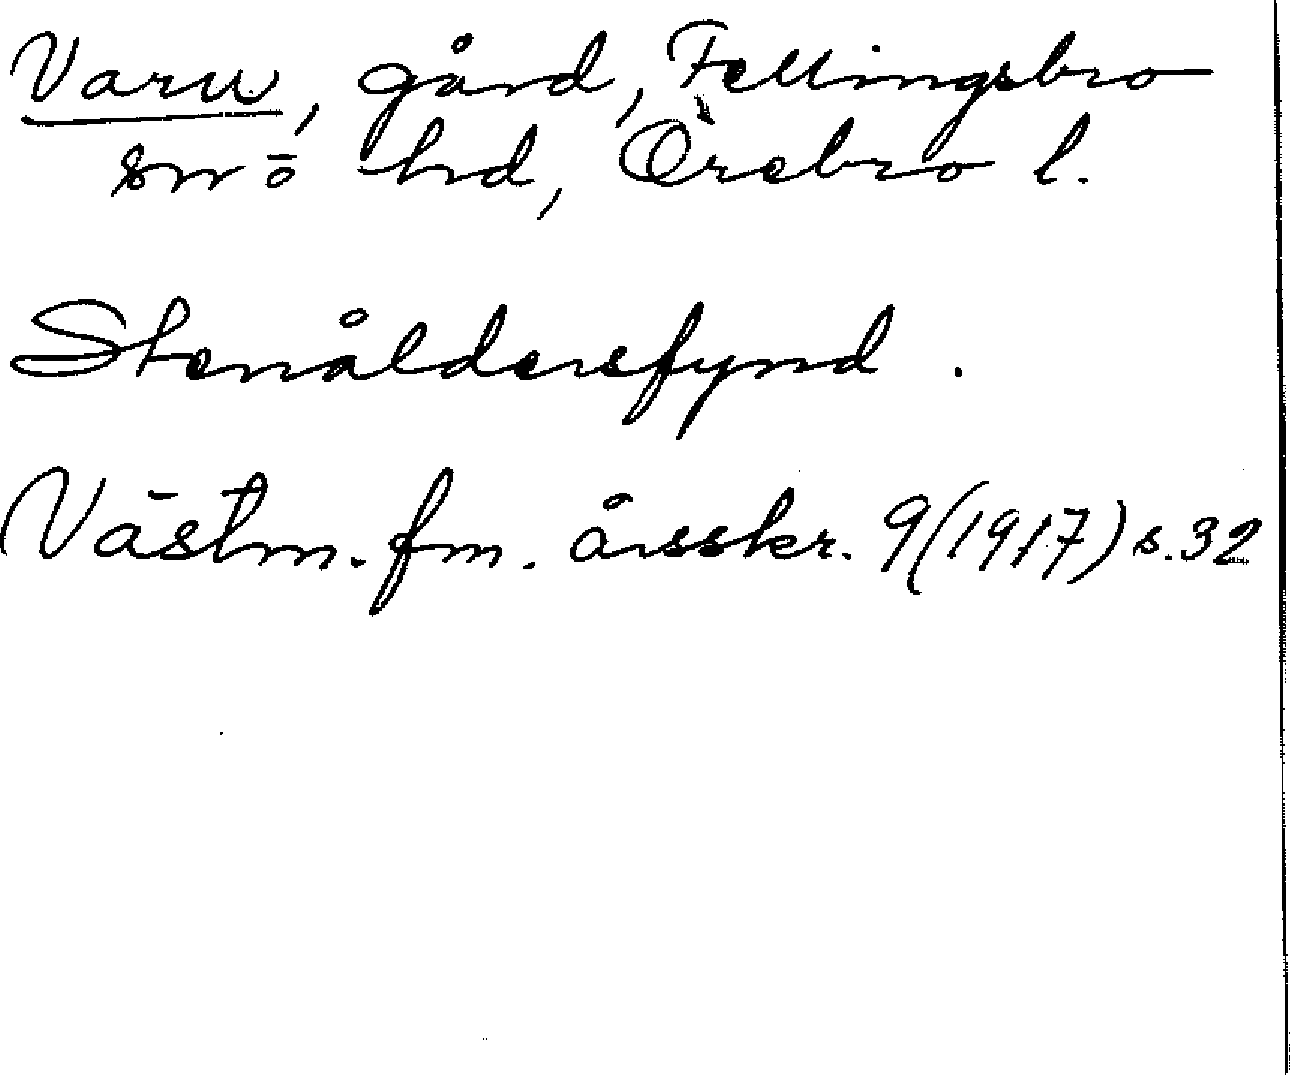 Varu, gård, Fellingsbro
sn ō hd, Örebro l.
Stenåldersfynd.
Västm. fm. årsskr. 9(1917) s. 32